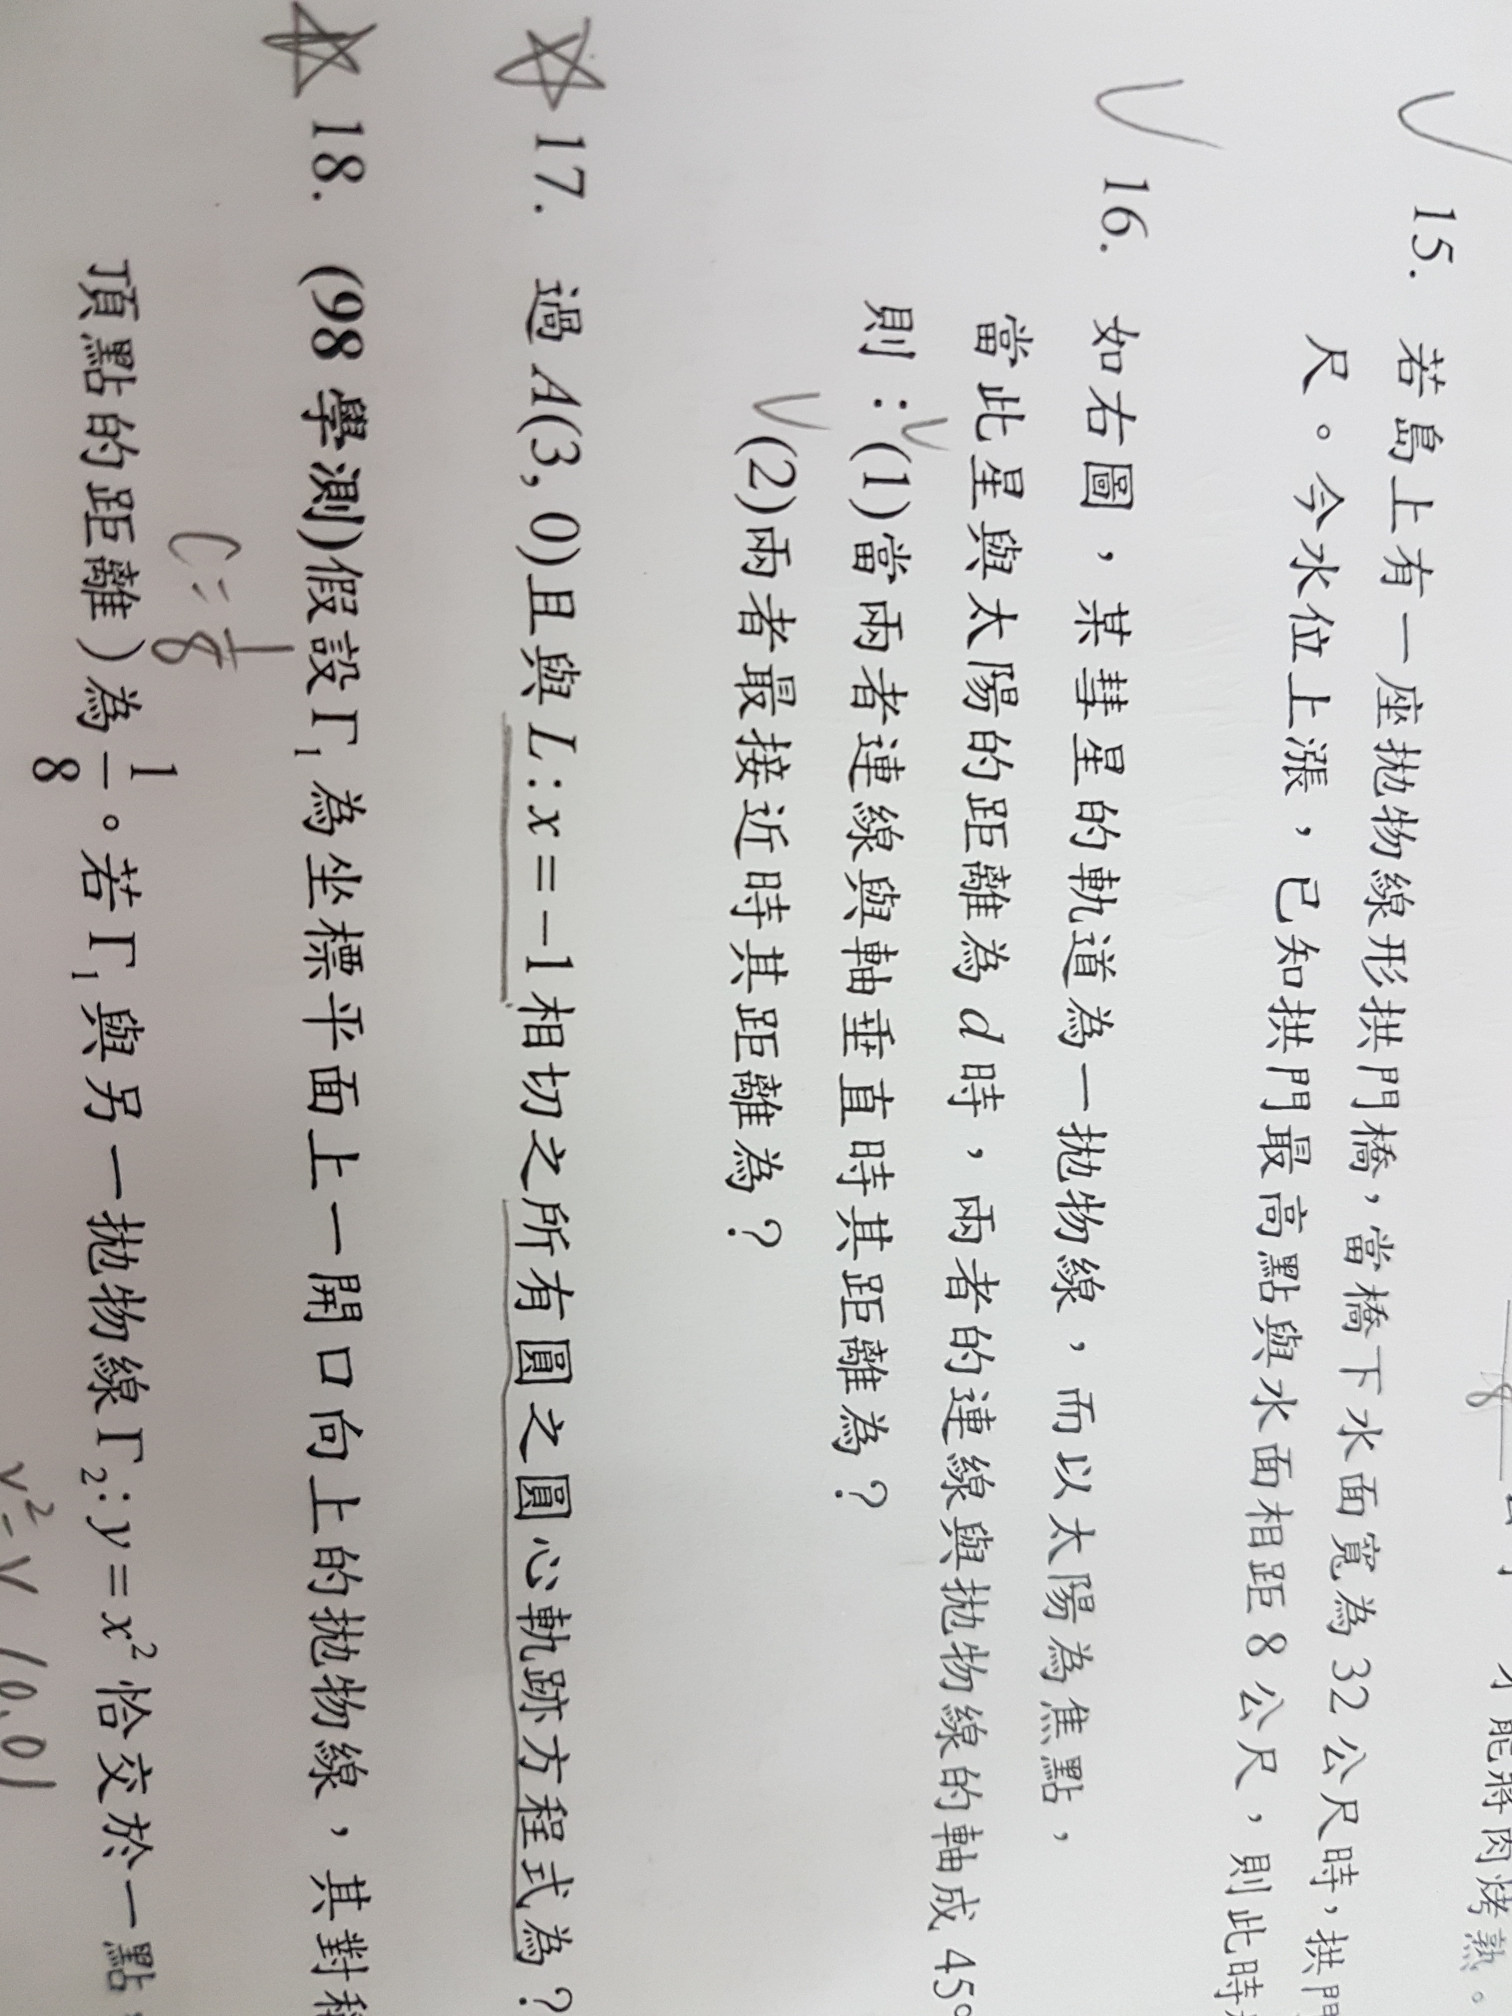 才能將肉烤熟。
8
15. 若島上有一座拋物線形拱門橋,當橋下水面寬為32公尺時,拱門
尺。今水位上漲,已知拱門最高點與水面相距8公尺,則此時
16. 如右圖,某彗星的軌道為一拋物線,而以太陽為焦點,
當此星與太陽的距離為d時,兩者的連線與拋物線的軸成45°
則:(1)當兩者連線與軸垂直時其距離為?
(2)兩者最接近時其距離為?
17. 過A(3, 0)且與L:x=-1相切之所有圓之圓心軌跡方程式為?
18. (98學測)假設Γ₁為坐標平面上一開口向上的拋物線,其對稱
C=1/8
頂點的距離)為1/8。若Γ₁與另一拋物線Γ₂:y=x²恰交於一點,